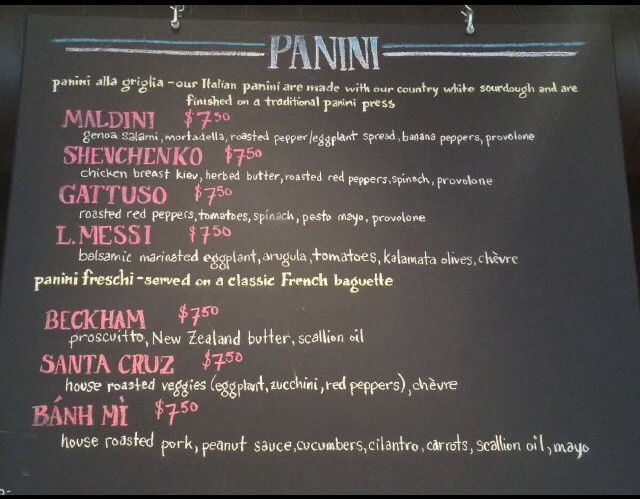 PANINI
panini alla griglia - our Italian panini are made with our country white sourdough and are
finished on a traditional panini press
MALDINI $7.50
genoa salami, mortadella, roasted pepper/eggplant spread, banana peppers, provolone
SHEVCHENKO $7.50
chicken breast kiev, herbed butter, roasted red peppers, spinach, provolone
GATTUSO $7.50
roasted red peppers, tomatoes, spinach, pesto mayo, provolone
L.MESSI $7.50
balsamic marinated eggplant, arugula, tomatoes, kalamata olives, chèvre
panini freschi - served on a classic French baguette
BECKHAM $7.50
proscuitto, New Zealand butter, scallion oil
SANTA CRUZ $7.50
house roasted veggies (eggplant, zucchini, red peppers), chèvre
BÁNH MÌ $7.50
house roasted pork, peanut sauce, cucumbers, cilantro, carrots, scallion oil, mayo